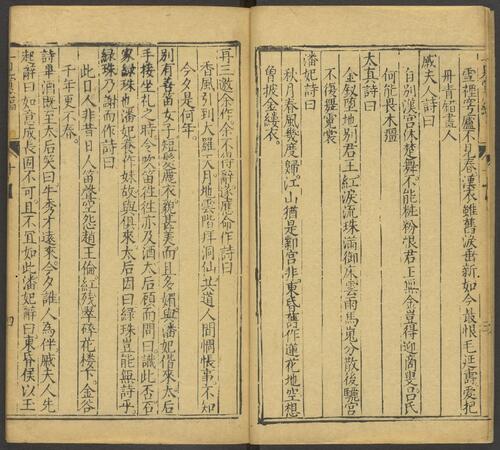 雪裡穹廬不見春漢衣雖舊淚垂新如今最恨毛延壽愛把
丹青錯畫人
戚夫人詩曰
自別漢宫休楚舞不能粧粉恨君王無金豈得迎商叟吕氏
何能畏木彊
太真詩曰
金釵墮地别君王紅淚流珠滿御床雲雨馬嵬分散後驪宫
不復舞霓裳
潘妃詩曰
秋月春風幾度歸江山猶是鄴宫非東昏舊作蓮花地空想
曾披金縷衣
再三邀余作余不得辭遂應命作詩曰
香風引到大羅天月地雲階拜洞仙共道人間惆悵事不知
今夕是何年
别有善笛女子短髮麗衣貌甚美而且多媚與潘妃偕來太后
手接坐礼之時令吹笛往往亦及酒太后顧而問曰識此否石
家緑珠也潘妃養作妹故與俱來太后因曰緑珠豈能無詩乎
緑珠乃謝而作詩曰
此日人非昔日人笛聲空怨趙王倫紅殘翠碎花樓下金谷
千年更不春
詩畢酒既至太后笑曰牛秀才遠來今夕誰人為伴戚夫人先
起辭曰如意成長固不可且不宜如此潘妃辭曰東昏侯以王